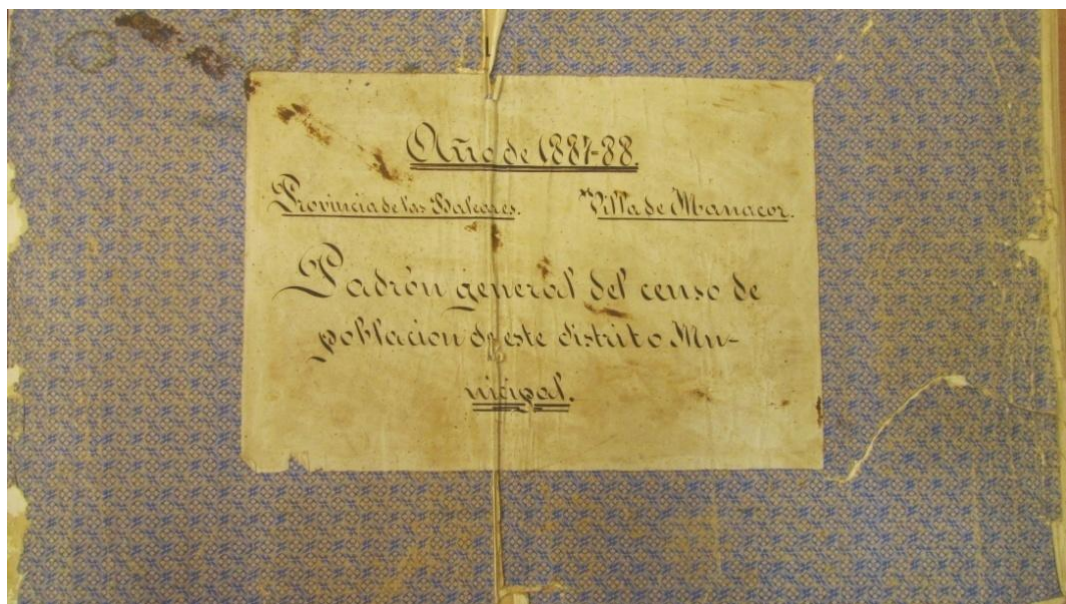 Año de 1887-88.
Provincia de las Baleares. Villa de Manacor.
Padrón general del censo de
poblacion de este distrito Mu-
nicipal.